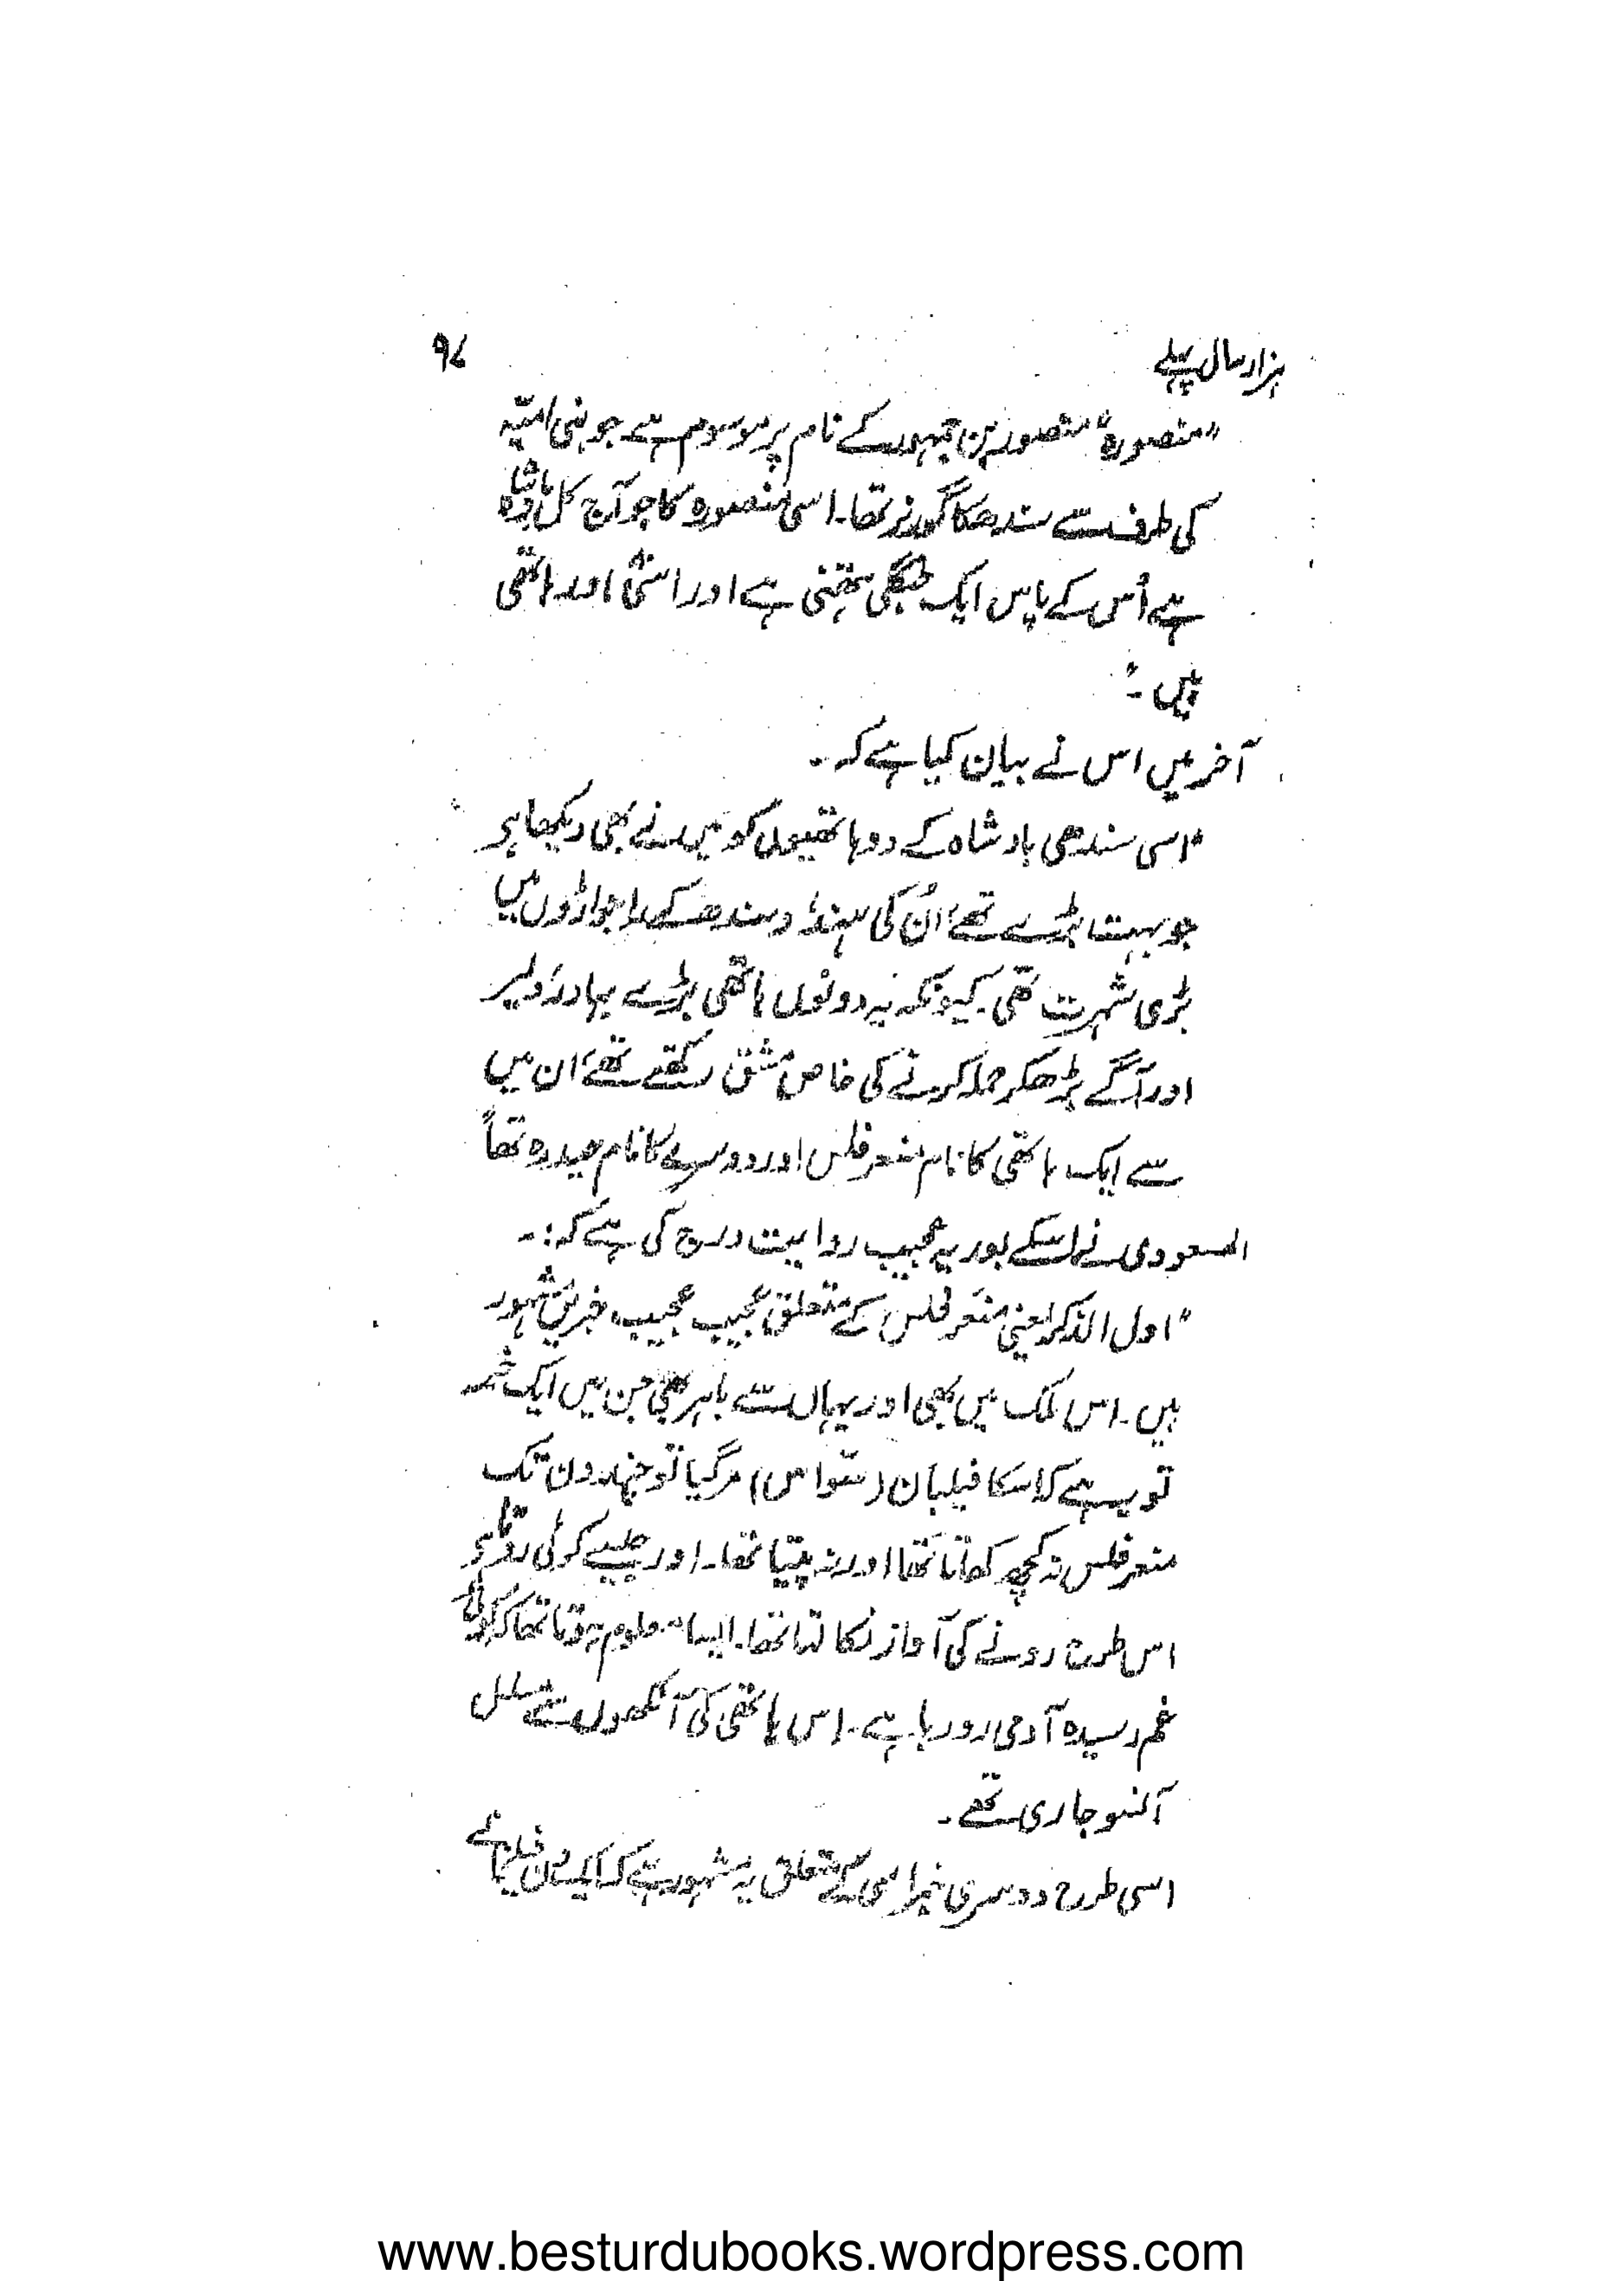 ہزار سال پہلے ۹۷
"منصورہ" منصور بن جمہور کے نام پر موسوم ہے جو بنی امیہ
کی طرف سے سندھ کا گورنر تھا۔ اسی منصورہ کا جو آج کل بادشاہ
ہے اُس کے پاس ایک جنگی ہتھنی ہے اور اسّی ہاتھی
ہیں۔"
آخر میں اس نے بیان کیا ہے کہ۔
"اسی سندھی بادشاہ کے دو ہاتھیوں کو میں نے بھی دیکھا ہے
جو بہت بڑے تھے اُن کی ہند و سندھ کے راجواڑوں میں
بڑی شہرت تھی کیونکہ یہ دونوں ہاتھی بڑے بہادر دلیر
اور آگے بڑھ کر حملہ کرنے کی خاص مشق رکھتے تھے ان میں
سے ایک ہاتھی کا نام منعرفلس اور دوسرے کا نام حیدرہ تھا"
المسعودی نے اسکے بعد یہ عجیب روایت درج کی ہے کہ:۔
"اول الذکر یعنی منعرفلس کے متعلق عجیب عجیب خبریں مشہور
ہیں۔ اس ملک میں بھی اور یہاں سے باہر بھی جن میں ایک
تو یہ ہے کہ اسکا فیلبان (سواس) مر گیا تو چند دن تک
منعرفلس نہ کچھ کھاتا تھا اور نہ پیتا تھا۔ اور جیسے کوئی روتا ہے
اس طرح رونے کی آواز نکالتا تھا۔ ایسا معلوم ہوتا تھا کہ کوئی
غم رسیدہ آدمی رو رہا ہے۔ اس ہاتھی کی آنکھوں سے مسلسل
آنسو جاری تھے۔
اسی طرح دوسری خبر اسی کے متعلق یہ مشہور ہے کہ ایک دن
www.besturdubooks.wordpress.com